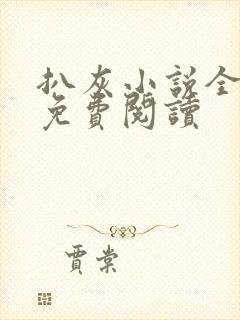 扒灰小说全
免費閱讀
賈棠